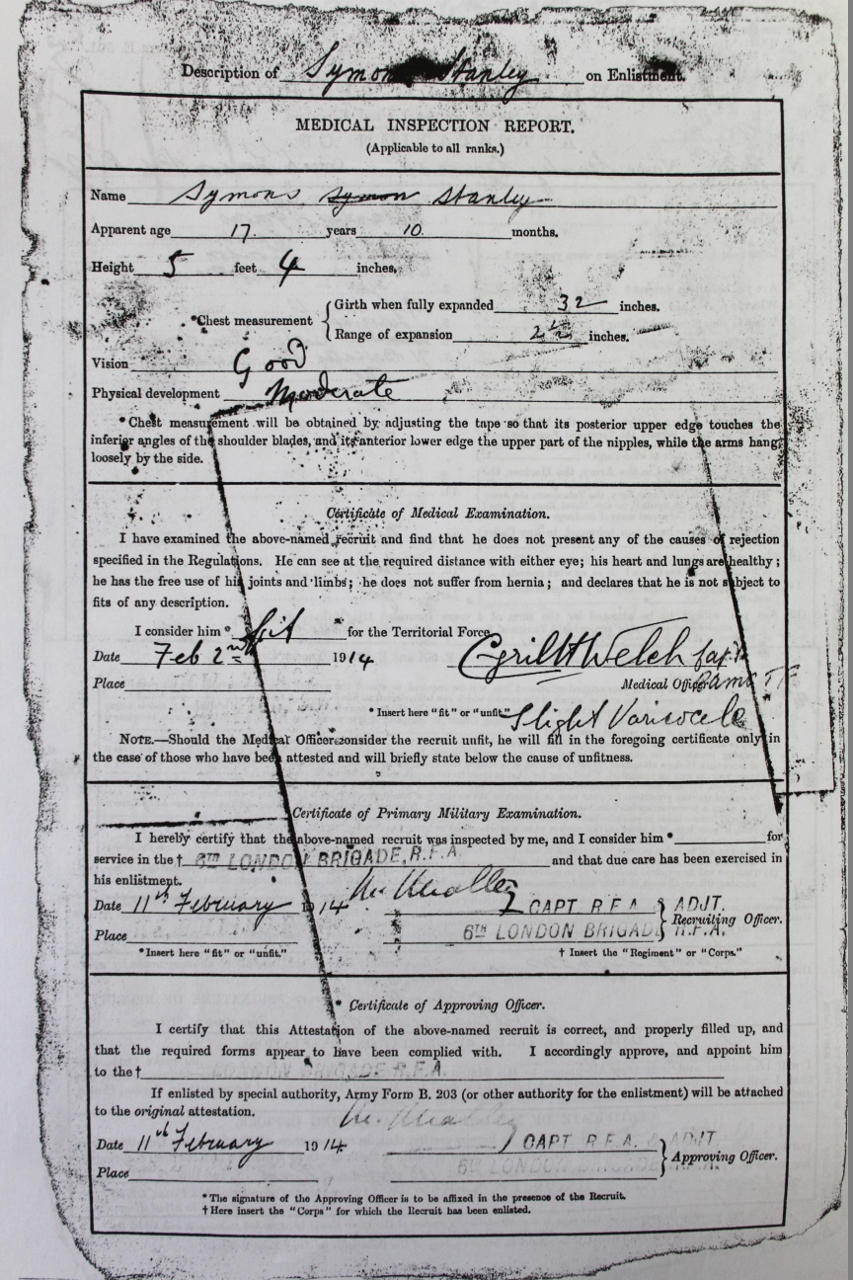 Description of Symons Stanley on Enlistment.
MEDICAL INSPECTION REPORT.
(Applicable to all ranks.)
Name Symons Symon Stanley
Apparent age 17. years 10. months.
Height 5 feet 4 inches.
*Chest measurement { Girth when fully expanded 32 inches.
Range of expansion 2½ inches.
Vision Good
Physical development Moderate
*Chest measurement will be obtained by adjusting the tape so that its posterior upper edge touches the
inferior angles of the shoulder blades, and its anterior lower edge the upper part of the nipples, while the arms hang
loosely by the side.
Certificate of Medical Examination.
I have examined the above-named recruit and find that he does not present any of the causes of rejection
specified in the Regulations. He can see at the required distance with either eye; his heart and lungs are healthy;
he has the free use of his joints and limbs; he does not suffer from hernia; and declares that he is not subject to
fits of any description.
I consider him* fit for the Territorial Force.
Date Feb 2nd 1914 Cyril H Welch Capt
Place Medical Officer. RAMC TF
*Insert here "fit" or "unfit." Slight Varicocele
NOTE.—Should the Medical Officer consider the recruit unfit, he will fill in the foregoing certificate only in
the case of those who have been attested and will briefly state below the cause of unfitness.
Certificate of Primary Military Examination.
I hereby certify that the above-named recruit was inspected by me, and I consider him * for
service in the † 6TH LONDON BRIGADE, R.F.A. and that due care has been exercised in
his enlistment.
Date 11th February 1914 CAPT R.F.A. } ADJT.
Recruiting Officer.
Place 6TH LONDON BRIGADE R.F.A.
*Insert here "fit" or "unfit." † Insert the "Regiment" or "Corps."
* Certificate of Approving Officer.
I certify that this Attestation of the above-named recruit is correct, and properly filled up, and
that the required forms appear to have been complied with. I accordingly approve, and appoint him
to the † LONDON BRIGADE R.F.A.
If enlisted by special authority, Army Form B. 203 (or other authority for the enlistment) will be attached
to the original attestation.
Date 11th February 1914 CAPT R.F.A. & ADJT.
} Approving Officer.
Place 6TH LONDON BRIGADE R.F.A.
*The signature of the Approving Officer is to be affixed in the presence of the Recruit.
† Here insert the "Corps" for which the Recruit has been enlisted.